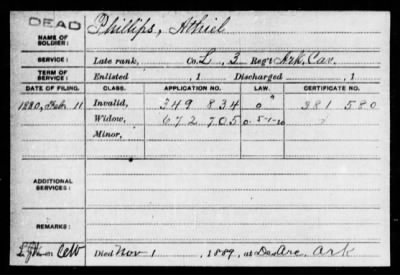 DEAD
NAME OF SOLDIER: Phillips, Athiel
SERVICE: Late rank, Co. L, 3 Reg't Ark. Cav.
TERM OF SERVICE: Enlisted , 1 Discharged , 1
DATE OF FILING. CLASS. APPLICATION NO. LAW. CERTIFICATE NO.
1880, Feb. 11 Invalid, 349 834 381 580
Widow, 672 705
Minor,
ADDITIONAL SERVICES:
REMARKS:
Died Nov 1, 1889, at DesArc, Ark